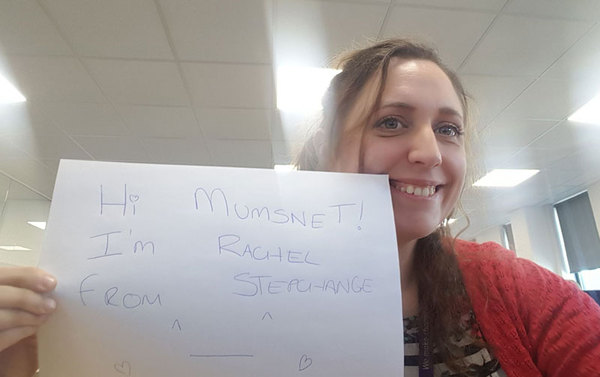 Hi MUMSNET!
I'm RACHEL
FROM STEPCHANGE